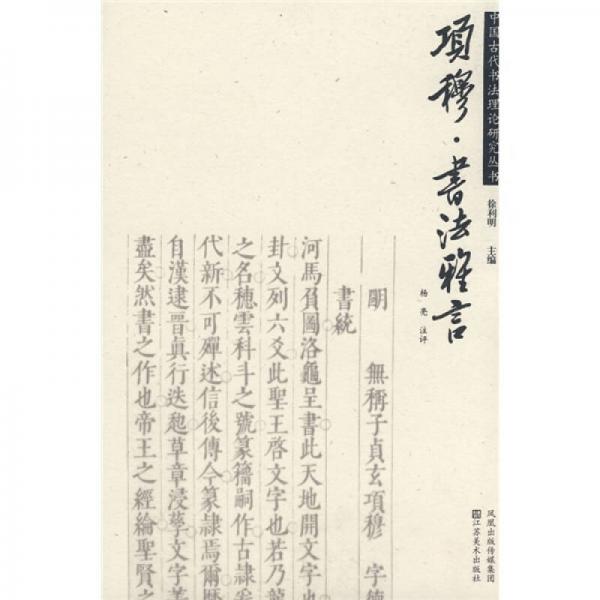 中国古代书法理论研究丛书
徐利明 主编
項穆·書法雅言
杨亮 注评
明 無稱子貞玄項穆 字德
書統
河馬負圖洛龜呈書此天地開文字也
卦文列六爻此聖王啓文字也若乃龍
之名穗雲科斗之號篆籀嗣作古隸爰
代新不可殫述信後傳今篆隸焉爾歷
自漢逮晉眞行迭起草章浸孳文字菁
盡矣然書之作也帝王之經綸聖賢之
凤凰出版传媒集团
江苏美术出版社